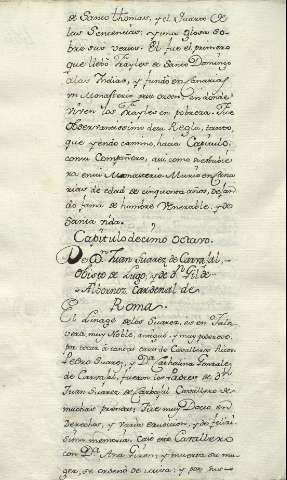 de Santo thomas, y el Quarto de
las Sentencias, y una glosa so-
bre sus versos. El fue el primero
que llebó frayles de Santo Domingo
a las Indias, y fundo en Canarias
un Monasterio de su orden, en donde
viven los frayles en pobreza. Fue
observantissimo de su Regla, tanto,
que yendo camino, hacia Capitulo,
con su Compañero, asi como
en su Monasterio. Murio en Cana
rias de edad de cinquenta años, dejan
do fama de hombre Venerable, y de
Santa vida.
Capitulo decimo Octavo.
De Dn. Juan Suarez de Carvajal,
Obispo de Lugo, y de Dn. Gil de
Albornoz Cardenal de
Roma.
El Linage de los Suarez, es en Tala
vera, muy Noble, antiguo, y muy poderoso,
por tocar á tantas casas de Cavalleros Ricos.
Pedro Suarez, y Da. Cathalina Gonzalez
de Carvajal, fueron los Padres de Dn.
Juan Suarez de Carbajal Cavallero de
muchas prendas; Fue muy Docto en
derechos, y varia erudicion, y de felici
sima memoria. Casó este Cavallero
con Da. Ana Giron, y muerta su mu
ger, se ordenó de misa, y por sus